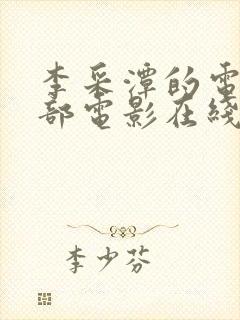 李采潭的電
部電影在綫
李少芬